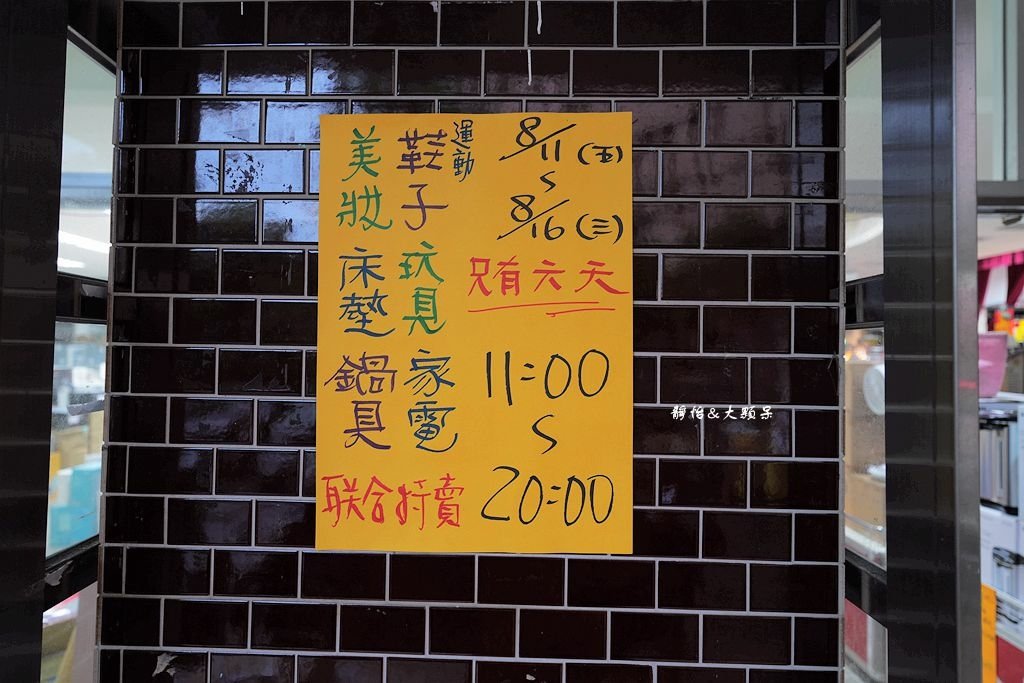 8/11(五)
S
8/16(三)
只有六天
11:00
S
20:00
運動
鞋子
玩具
家電
美妝
床墊
鍋具
联合特賣
靜怡&大顆呆